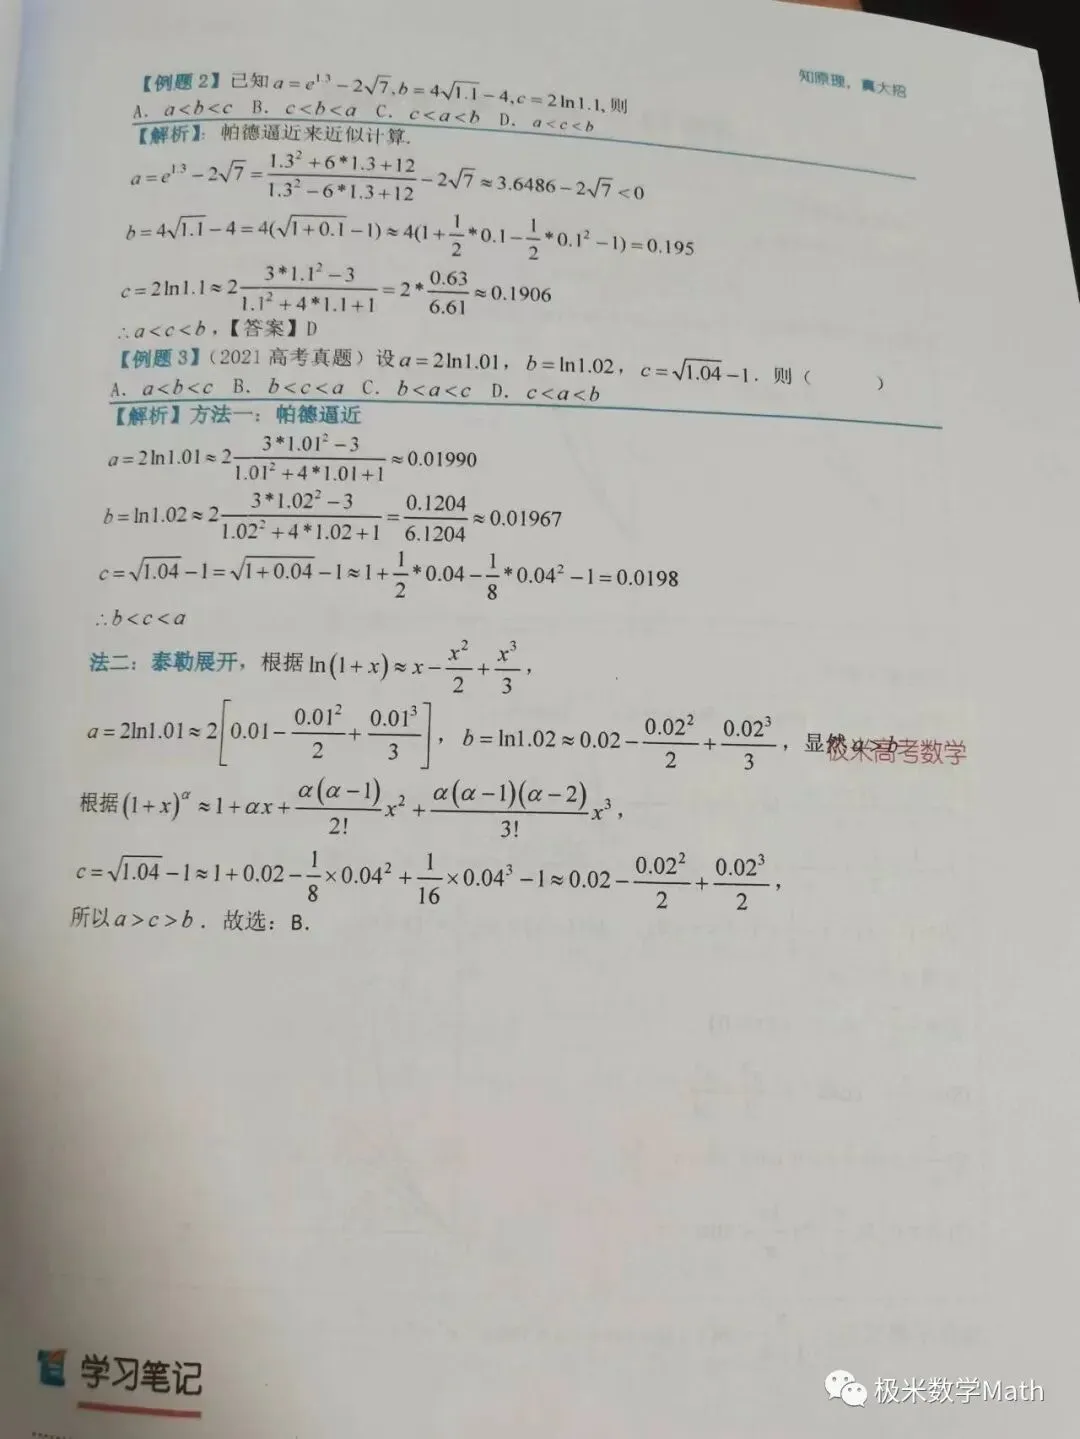 知原理，真大招
【例题2】已知 a = e^{1.3} − 2√7, b = 4√1.1 − 4, c = 2ln1.1, 则
A. a<b<c B. c<b<a C. c<a<b D. a<c<b
【解析】：帕德逼近来近似计算.
a = e^{1.3} − 2√7 = (1.3² + 6*1.3 + 12)/(1.3² − 6*1.3 + 12) − 2√7 ≈ 3.6486 − 2√7 < 0
b = 4√1.1 − 4 = 4(√(1+0.1) − 1) ≈ 4(1 + 1/2*0.1 − 1/2*0.1² − 1) = 0.195
c = 2ln1.1 ≈ 2 (3*1.1² − 3)/(1.1² + 4*1.1 + 1) = 2* 0.63/6.61 ≈ 0.1906
∴a<c<b，【答案】D
【例题3】（2021高考真题）设 a = 2ln1.01， b = ln1.02， c = √1.04 − 1. 则（ ）
A. a<b<c B. b<c<a C. b<a<c D. c<a<b
【解析】方法一：帕德逼近
a = 2ln1.01 ≈ 2 (3*1.01² − 3)/(1.01² + 4*1.01 + 1) ≈ 0.01990
b = ln1.02 ≈ 2 (3*1.02² − 3)/(1.02² + 4*1.02 + 1) = 0.1204/6.1204 ≈ 0.01967
c = √1.04 − 1 = √(1+0.04) − 1 ≈ 1 + 1/2*0.04 − 1/8*0.04² − 1 = 0.0198
∴b<c<a
法二：泰勒展开，根据 ln(1+x) ≈ x − x²/2 + x³/3，
a = 2ln1.01 ≈ 2[0.01 − 0.01²/2 + 0.01³/3]， b = ln1.02 ≈ 0.02 − 0.02²/2 + 0.02³/3，显然 a>b
极米高考数学
根据 (1+x)^α ≈ 1 + αx + α(α−1)/2! x² + α(α−1)(α−2)/3! x³，
c = √1.04 − 1 ≈ 1 + 0.02 − 1/8×0.04² + 1/16×0.04³ − 1 ≈ 0.02 − 0.02²/2 + 0.02³/2，
所以 a>c>b. 故选：B.
学习笔记
极米数学Math